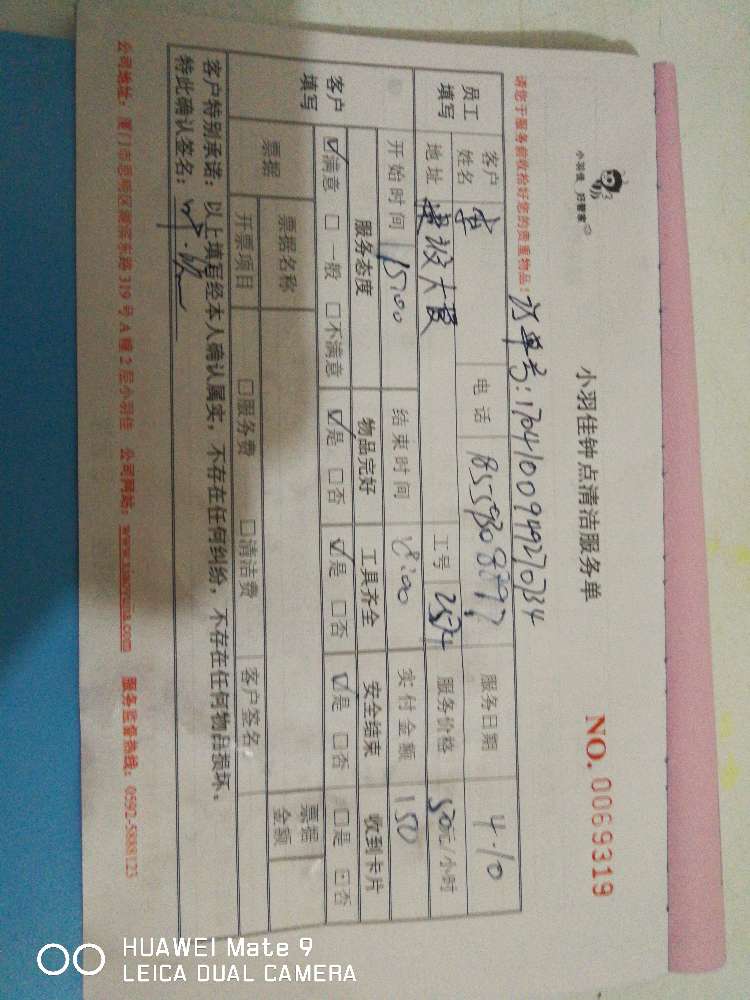 小羽佳 好管家
小羽佳钟点清洁服务单
NO. 0069319
请您于服务前收检好您的贵重物品!
订单号:170410094927034
员工填写
客户姓名
电话
服务日期 4.10
地址
大厦
工号 2524
服务价格 50元/小时
开始时间 15:00
结束时间 18:00
实付金额 150
客户填写
服务态度 物品完好 工具齐全 安全结束 收到卡片
☑满意 □一般 □不满意 ☑是 □否 ☑是 □否 ☑是 □否 □是 ☑否
票据
票据名称
票据金额
开票项目 □服务费 □清洁费 客户签名
客户特别承诺:以上填写经本人确认属实,不存在任何纠纷,不存在任何物品损坏。
特此确认签名:
公司地址:厦门市思明区湖滨东路319号A幢2层小羽佳 公司网站:www.xiaoyujia.com 服务监督热线:0592-5888123
HUAWEI Mate 9
LEICA DUAL CAMERA